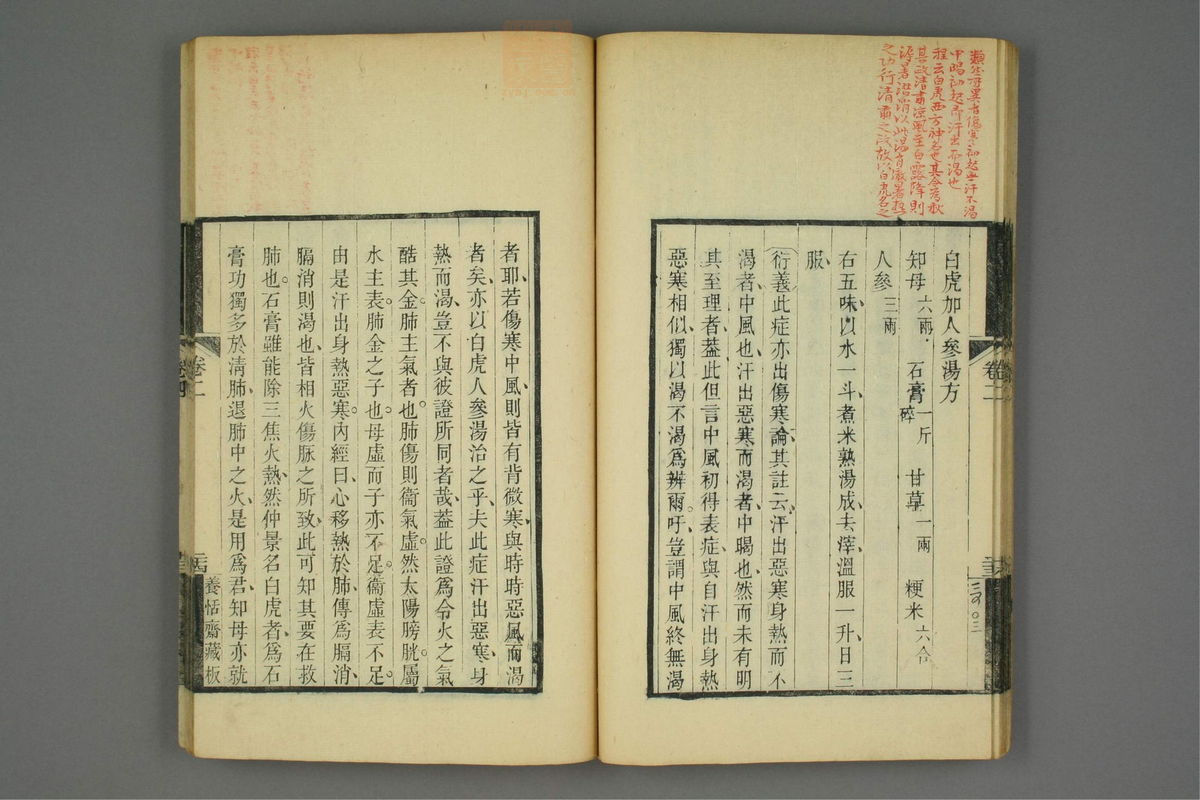 類公毋異者傷寒初起無汗不渴
中暍初起即汗出而渴也
程云白虎西方神名也其令為秋
其政清肅涼風至白露降則
溽暑潛消以此湯有徹暑熱
之功行清肅之政故以白虎名之
白虎加人參湯方
知母六兩 石膏一斤碎 甘草一兩 粳米六合
人參三兩
右五味、以水一斗、煮米熟湯成、去滓、溫服一升、日三
服、
衍義此症亦出傷寒論、其註云、汗出惡寒身熱而不
渴者、中風也、汗出惡寒而渴者、中暍也、然而未有明
其至理者、蓋此但言中風初得表症、與自汗出身熱
惡寒相似、獨以渴不渴為辨爾。吁、豈謂中風終無渴
卷二
者耶、若傷寒中風、則皆有背微寒、與時時惡風而渴
者矣、亦以白虎人參湯治之乎、夫此症汗出惡寒、身
熱而渴、豈不與彼證所同者哉、蓋此證為令火之氣
酷其金。肺主氣者也。肺傷則衞氣虛。然太陽膀胱。屬
水主表。肺金之子也。母虛而子亦不足。衞虛表不足。
由是汗出身熱惡寒。內經曰、心移熱於肺、傳為膈消、
膈消則渴也、皆相火傷脈之所致、此可知其要在救
肺也。石膏雖能除三焦火熱、然仲景名白虎者、為石
膏功獨多於淸肺、退肺中之火、是用為君、知母亦就
卷二
養恬齋藏板